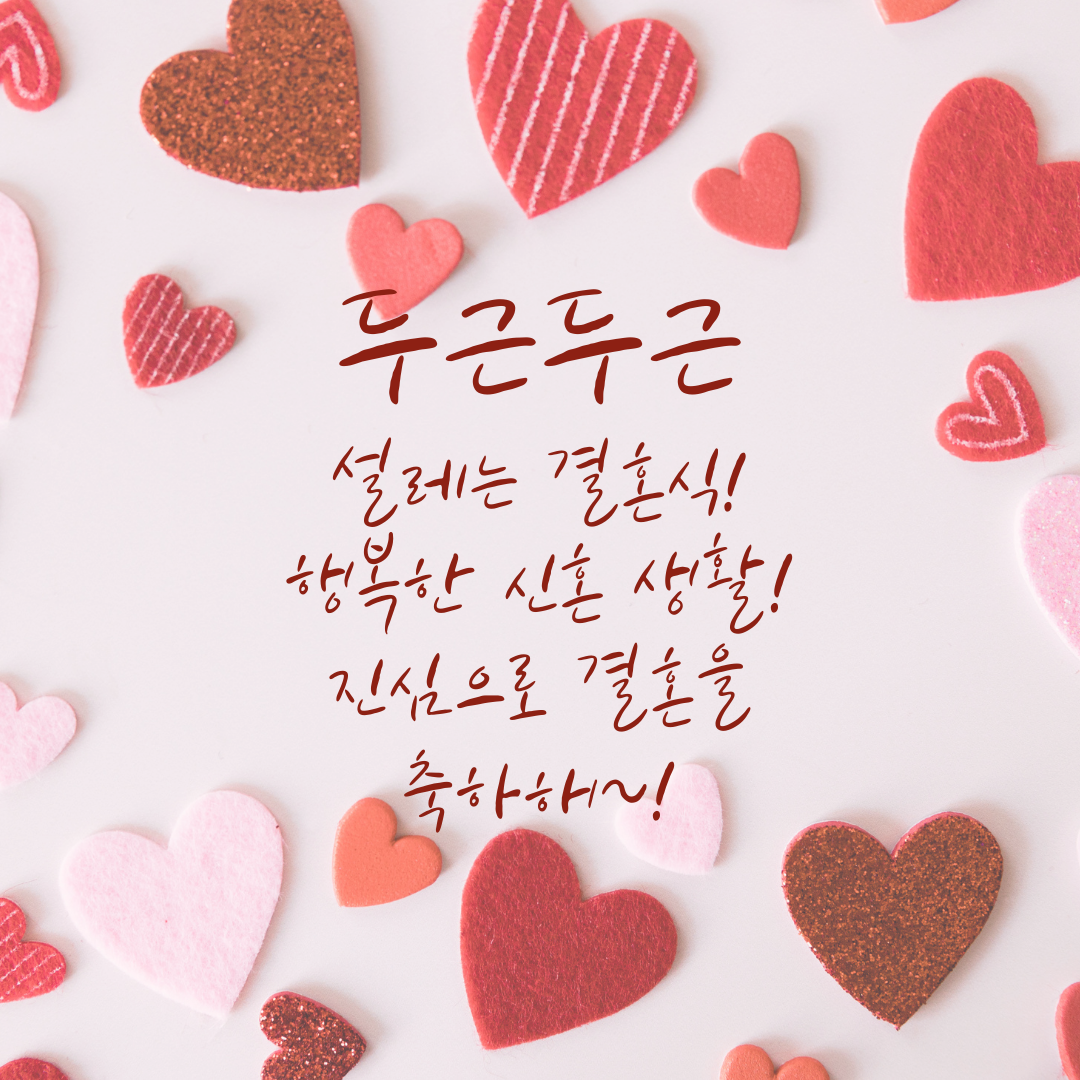 두근두근
설레는 결혼식!
행복한 신혼 생활!
진심으로 결혼을
축하해~!